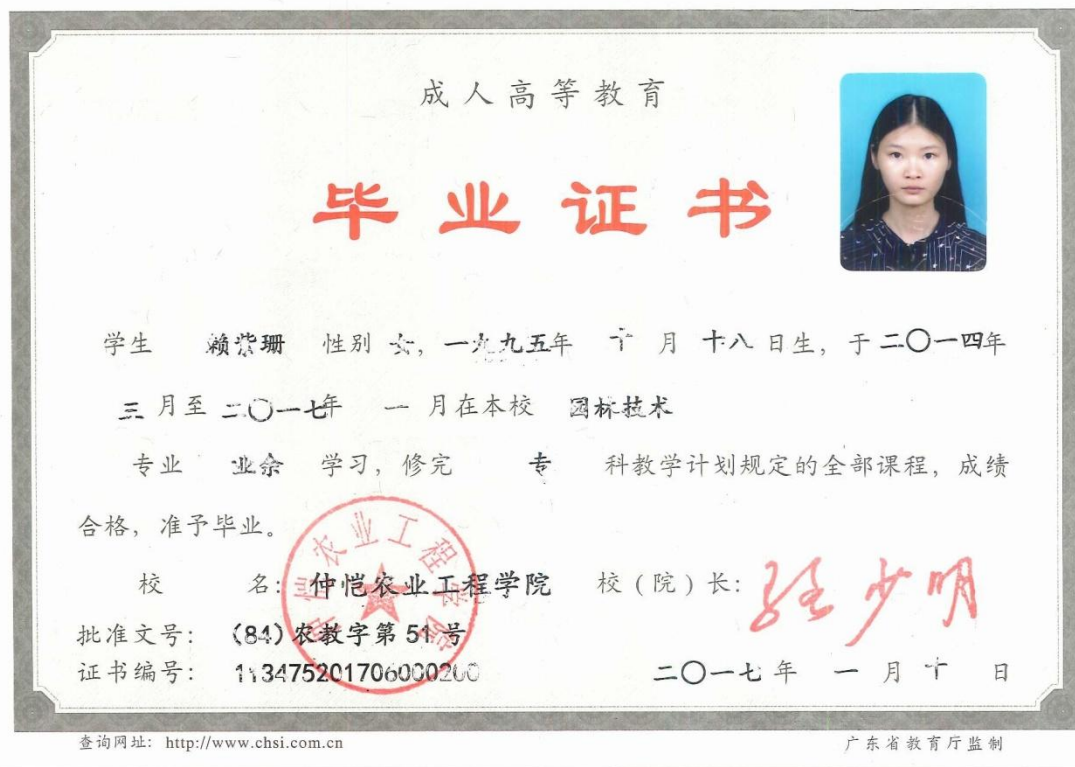 成人高等教育
毕业证书
学生 赖紫珊 性别 女，一九九五年 十 月 十八 日生，于二〇一四年
三 月至 二〇一七年 一 月在本校 园林技术
专业 业余 学习，修完 专 科教学计划规定的全部课程，成绩
合格，准予毕业。
仲恺农业工程学院
校 名：仲恺农业工程学院 校（院）长：
批准文号：（84）农教字第 51 号
证书编号：113475201706000200
二〇一七 年 一 月 十 日
查询网址：http://www.chsi.com.cn 广东省教育厅监制